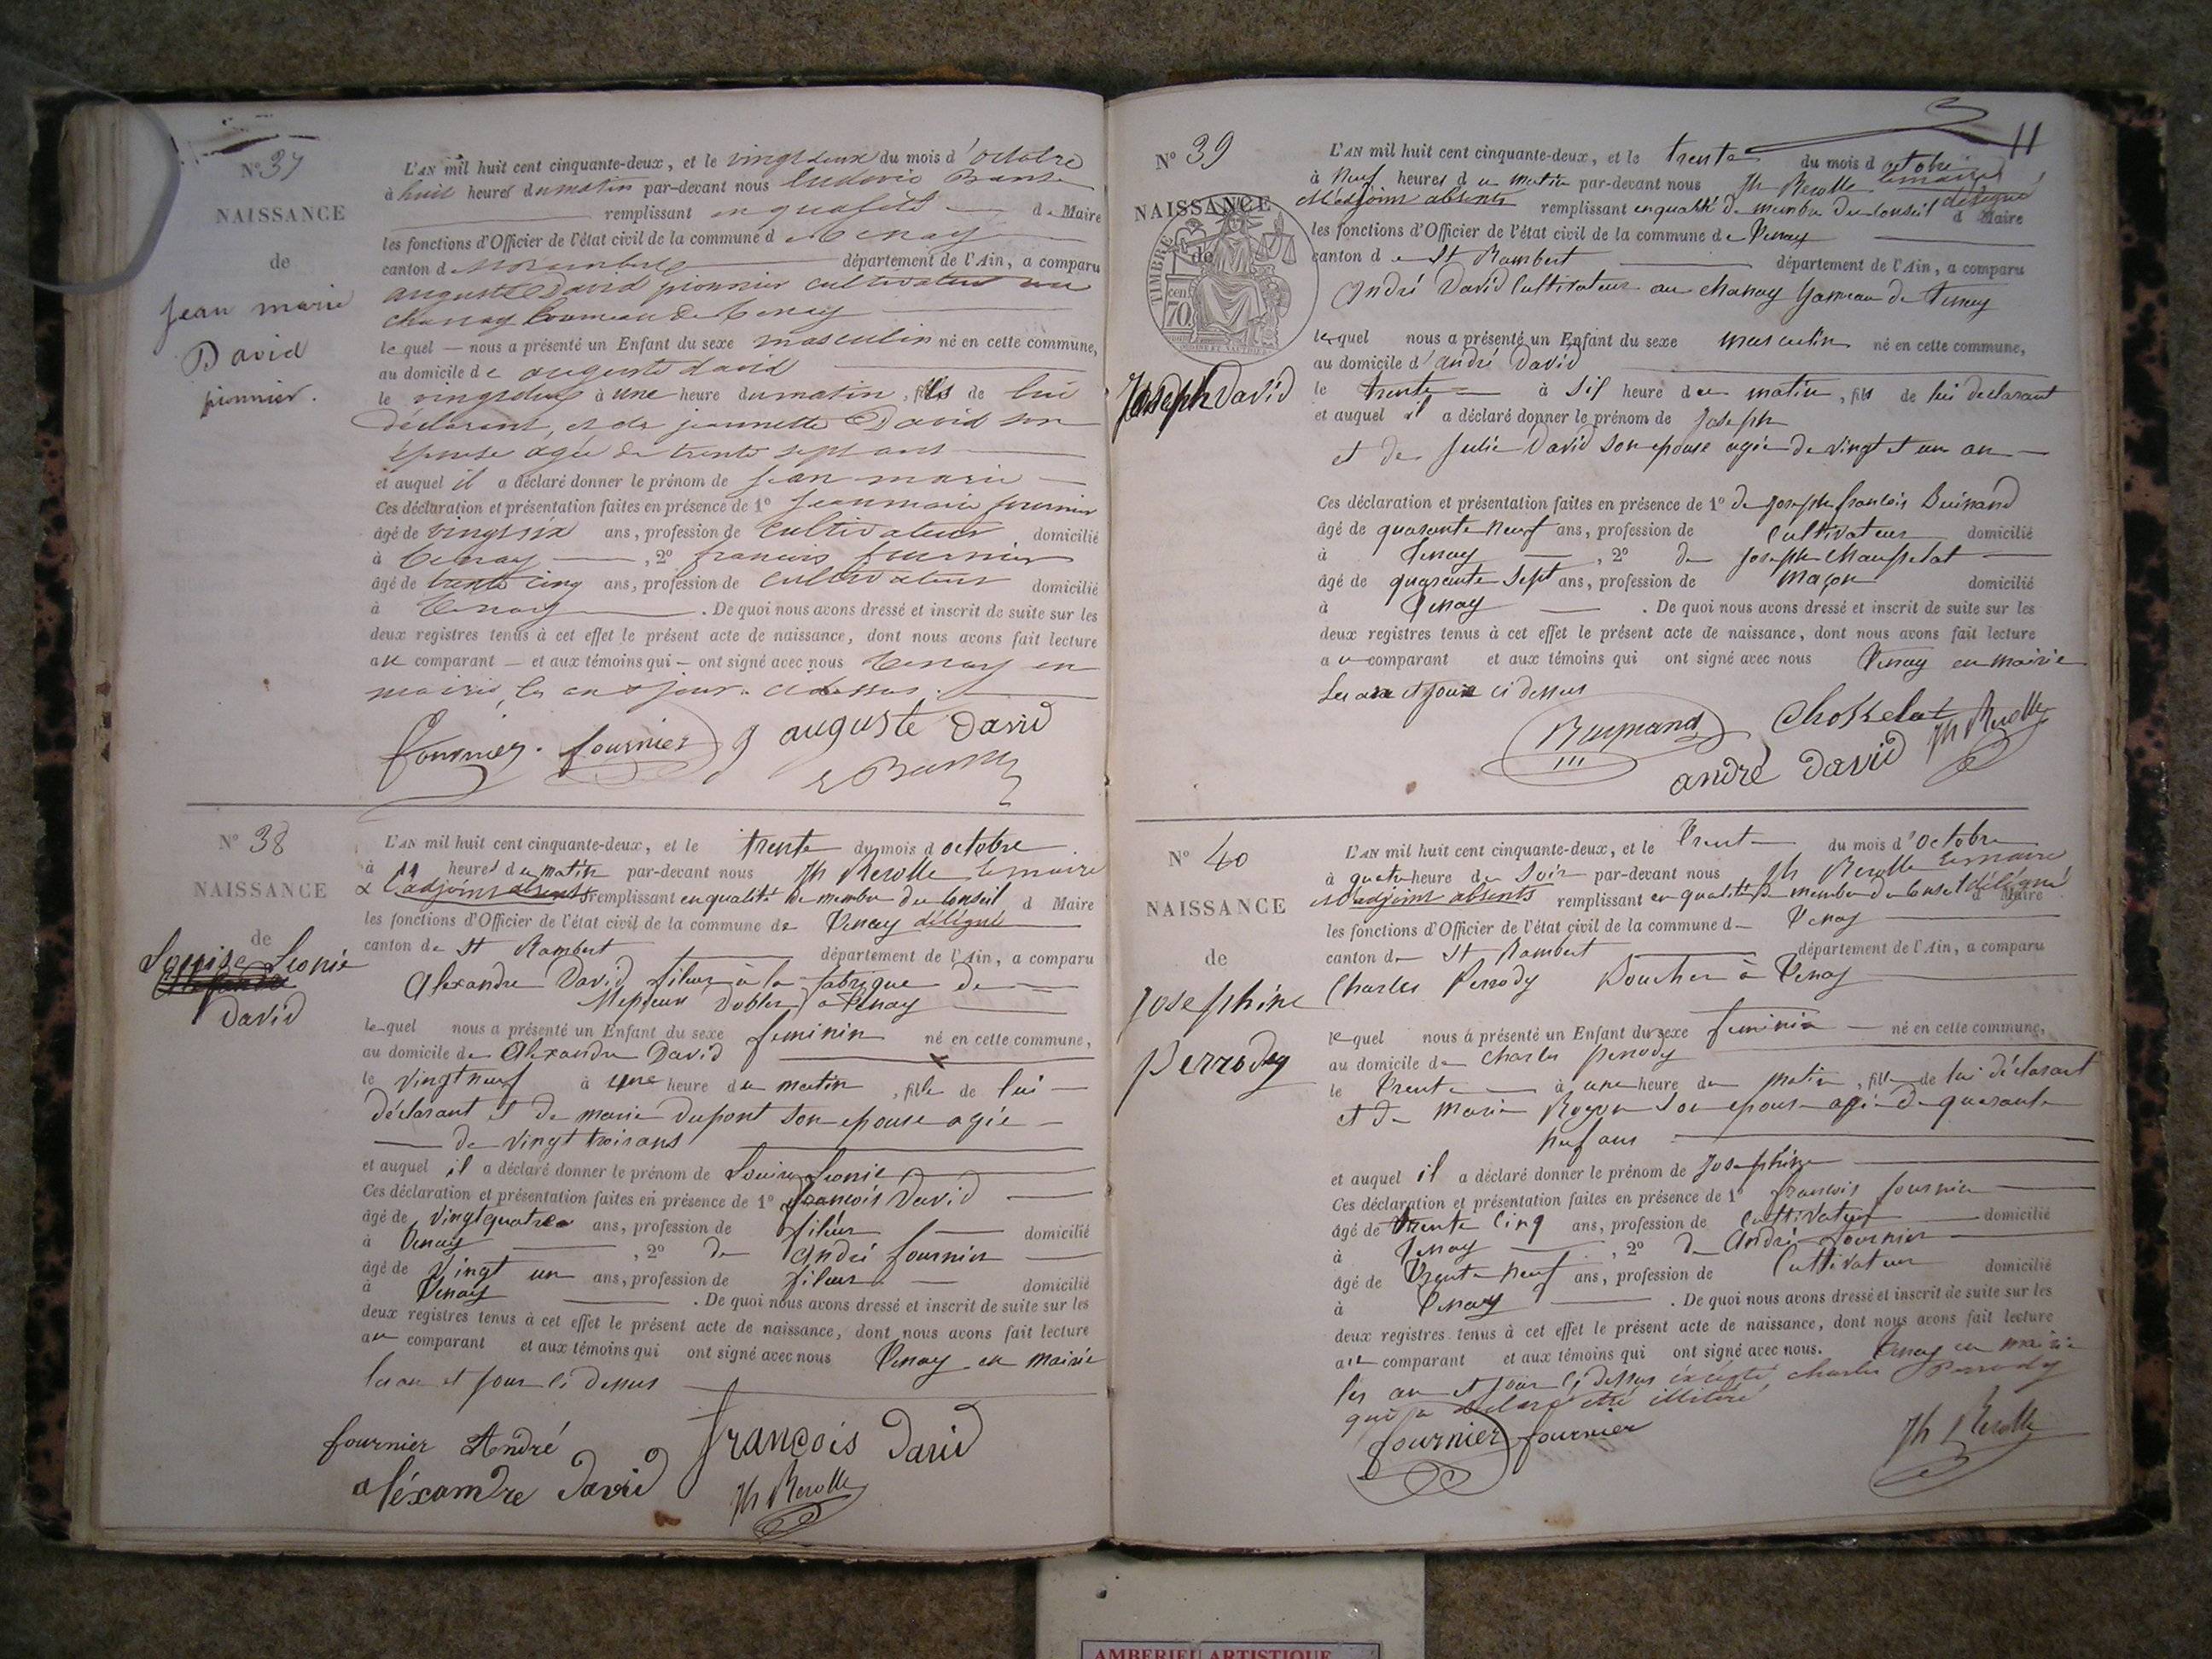 N° 37
NAISSANCE
de
Jean marie
David
pionnier.
L'AN mil huit cent cinquante-deux, et le vingt deux du mois d'octobre
à huit heures du matin par-devant nous Ludovic
remplissant en qualité de Maire
les fonctions d'Officier de l'état civil de la commune de Tenay
canton de département de l'Ain, a comparu
auguste David pionnier cultivateur au
chanay hameau de Tenay
lequel — nous a présenté un Enfant du sexe masculin né en cette commune,
au domicile de auguste david
le vingt deux à une heure du matin, fils de lui
déclarant, et de jeannette David son
épouse agée de trente sept ans
et auquel il a déclaré donner le prénom de jean marie
Ces déclaration et présentation faites en présence de 1° jean marie fournier
âgé de vingt six ans, profession de cultivateur domicilié
à Tenay, 2° francois fournier
âgé de trente cinq ans, profession de cultivateur domicilié
à Tenay. De quoi nous avons dressé et inscrit de suite sur les
deux registres tenus à cet effet le présent acte de naissance, dont nous avons fait lecture
au comparant — et aux témoins qui — ont signé avec nous Tenay en
mairie, les an & jour ci dessus.
fournier. fournier auguste David
N° 38
NAISSANCE
de
Louise Leonie
David
L'AN mil huit cent cinquante-deux, et le trente du mois d octobre
à 11 heures du matin par-devant nous Jh Rerolle le maire
& l'adjoint absents remplissant en qualité de membre du Conseil d Maire
les fonctions d'Officier de l'état civil de la commune de Tenay délégué
canton de St Rambert département de l'Ain, a comparu
Alexandre David fileur à la fabrique de
Messieurs Dobler à Tenay
lequel nous a présenté un Enfant du sexe feminin né en cette commune,
au domicile de Alexandre David
le vingt neuf à une heure du matin, fille de lui
déclarant et de marie dupont son epouse agée
de vingt trois ans
et auquel il a déclaré donner le prénom de Louise Leonie
Ces déclaration et présentation faites en présence de 1° francois David
âgé de vingt quatre ans, profession de fileur domicilié
à Tenay, 2° de André fournier
âgé de vingt un ans, profession de fileur domicilié
à Tenay. De quoi nous avons dressé et inscrit de suite sur les
deux registres tenus à cet effet le présent acte de naissance, dont nous avons fait lecture
au comparant et aux témoins qui ont signé avec nous Tenay en mairie
les an et jour ci dessus
fournier André françois David
aléxandre David Jh Rerolle
11
N° 39
NAISSANCE
de
TIMBRE
70
Joseph David
L'AN mil huit cent cinquante-deux, et le trente du mois d octobre
à Neuf heures du matin par-devant nous Jh Rerolle le maire
& l'adjoint absents remplissant en qualité de membre du Conseil délégué d Maire
les fonctions d'Officier de l'état civil de la commune de Tenay
canton de St Rambert département de l'Ain, a comparu
André David Cultivateur au chanay hameau de Tenay
lequel nous a présenté un Enfant du sexe masculin né en cette commune,
au domicile d'andré David
le trente à six heure du matin, fils de lui declarant
et auquel il a déclaré donner le prénom de Joseph
et de Julie David son epouse agée de vingt et un an
Ces déclaration et présentation faites en présence de 1° de Joseph francois
âgé de quarante neuf ans, profession de Cultivateur domicilié
à Tenay, 2° de Joseph
âgé de quarante sept ans, profession de maçon domicilié
à Tenay. De quoi nous avons dressé et inscrit de suite sur les
deux registres tenus à cet effet le présent acte de naissance, dont nous avons fait lecture
au comparant et aux témoins qui ont signé avec nous Tenay en mairie
Les an et jour ci dessus
Chosselat Jh Rerolle
andré David
N° 40
NAISSANCE
de
Josephine
Perrody
L'AN mil huit cent cinquante-deux, et le Trente du mois d'octobre
à quatre heure du Soir par-devant nous Jh Rerolle le maire
et l'adjoint absents remplissant en qualité de membre du Conseil délégué d Maire
les fonctions d'Officier de l'état civil de la commune de Tenay
canton de St Rambert département de l'Ain, a comparu
Charles Perrody Boucher à Tenay
lequel nous a présenté un Enfant du sexe feminin né en cette commune,
au domicile de Charles perrody
le Trente à une heure du matin, fille de lui déclarant
et de Marie son epouse agée de quarante
neuf ans
et auquel il a déclaré donner le prénom de Josephine
Ces déclaration et présentation faites en présence de 1° francois fournier
âgé de trente cinq ans, profession de Cultivateur domicilié
à Tenay, 2° de André fournier
âgé de Trente neuf ans, profession de Cultivateur domicilié
à Tenay. De quoi nous avons dressé et inscrit de suite sur les
deux registres tenus à cet effet le présent acte de naissance, dont nous avons fait lecture
au comparant et aux témoins qui ont signé avec nous. Tenay en mairie
les an et jour ci dessus éxcepté charles Perrody
qui a déclaré etre illitéré
fournier fournier Jh Rerolle
AMBERIEU ARTISTIQUE